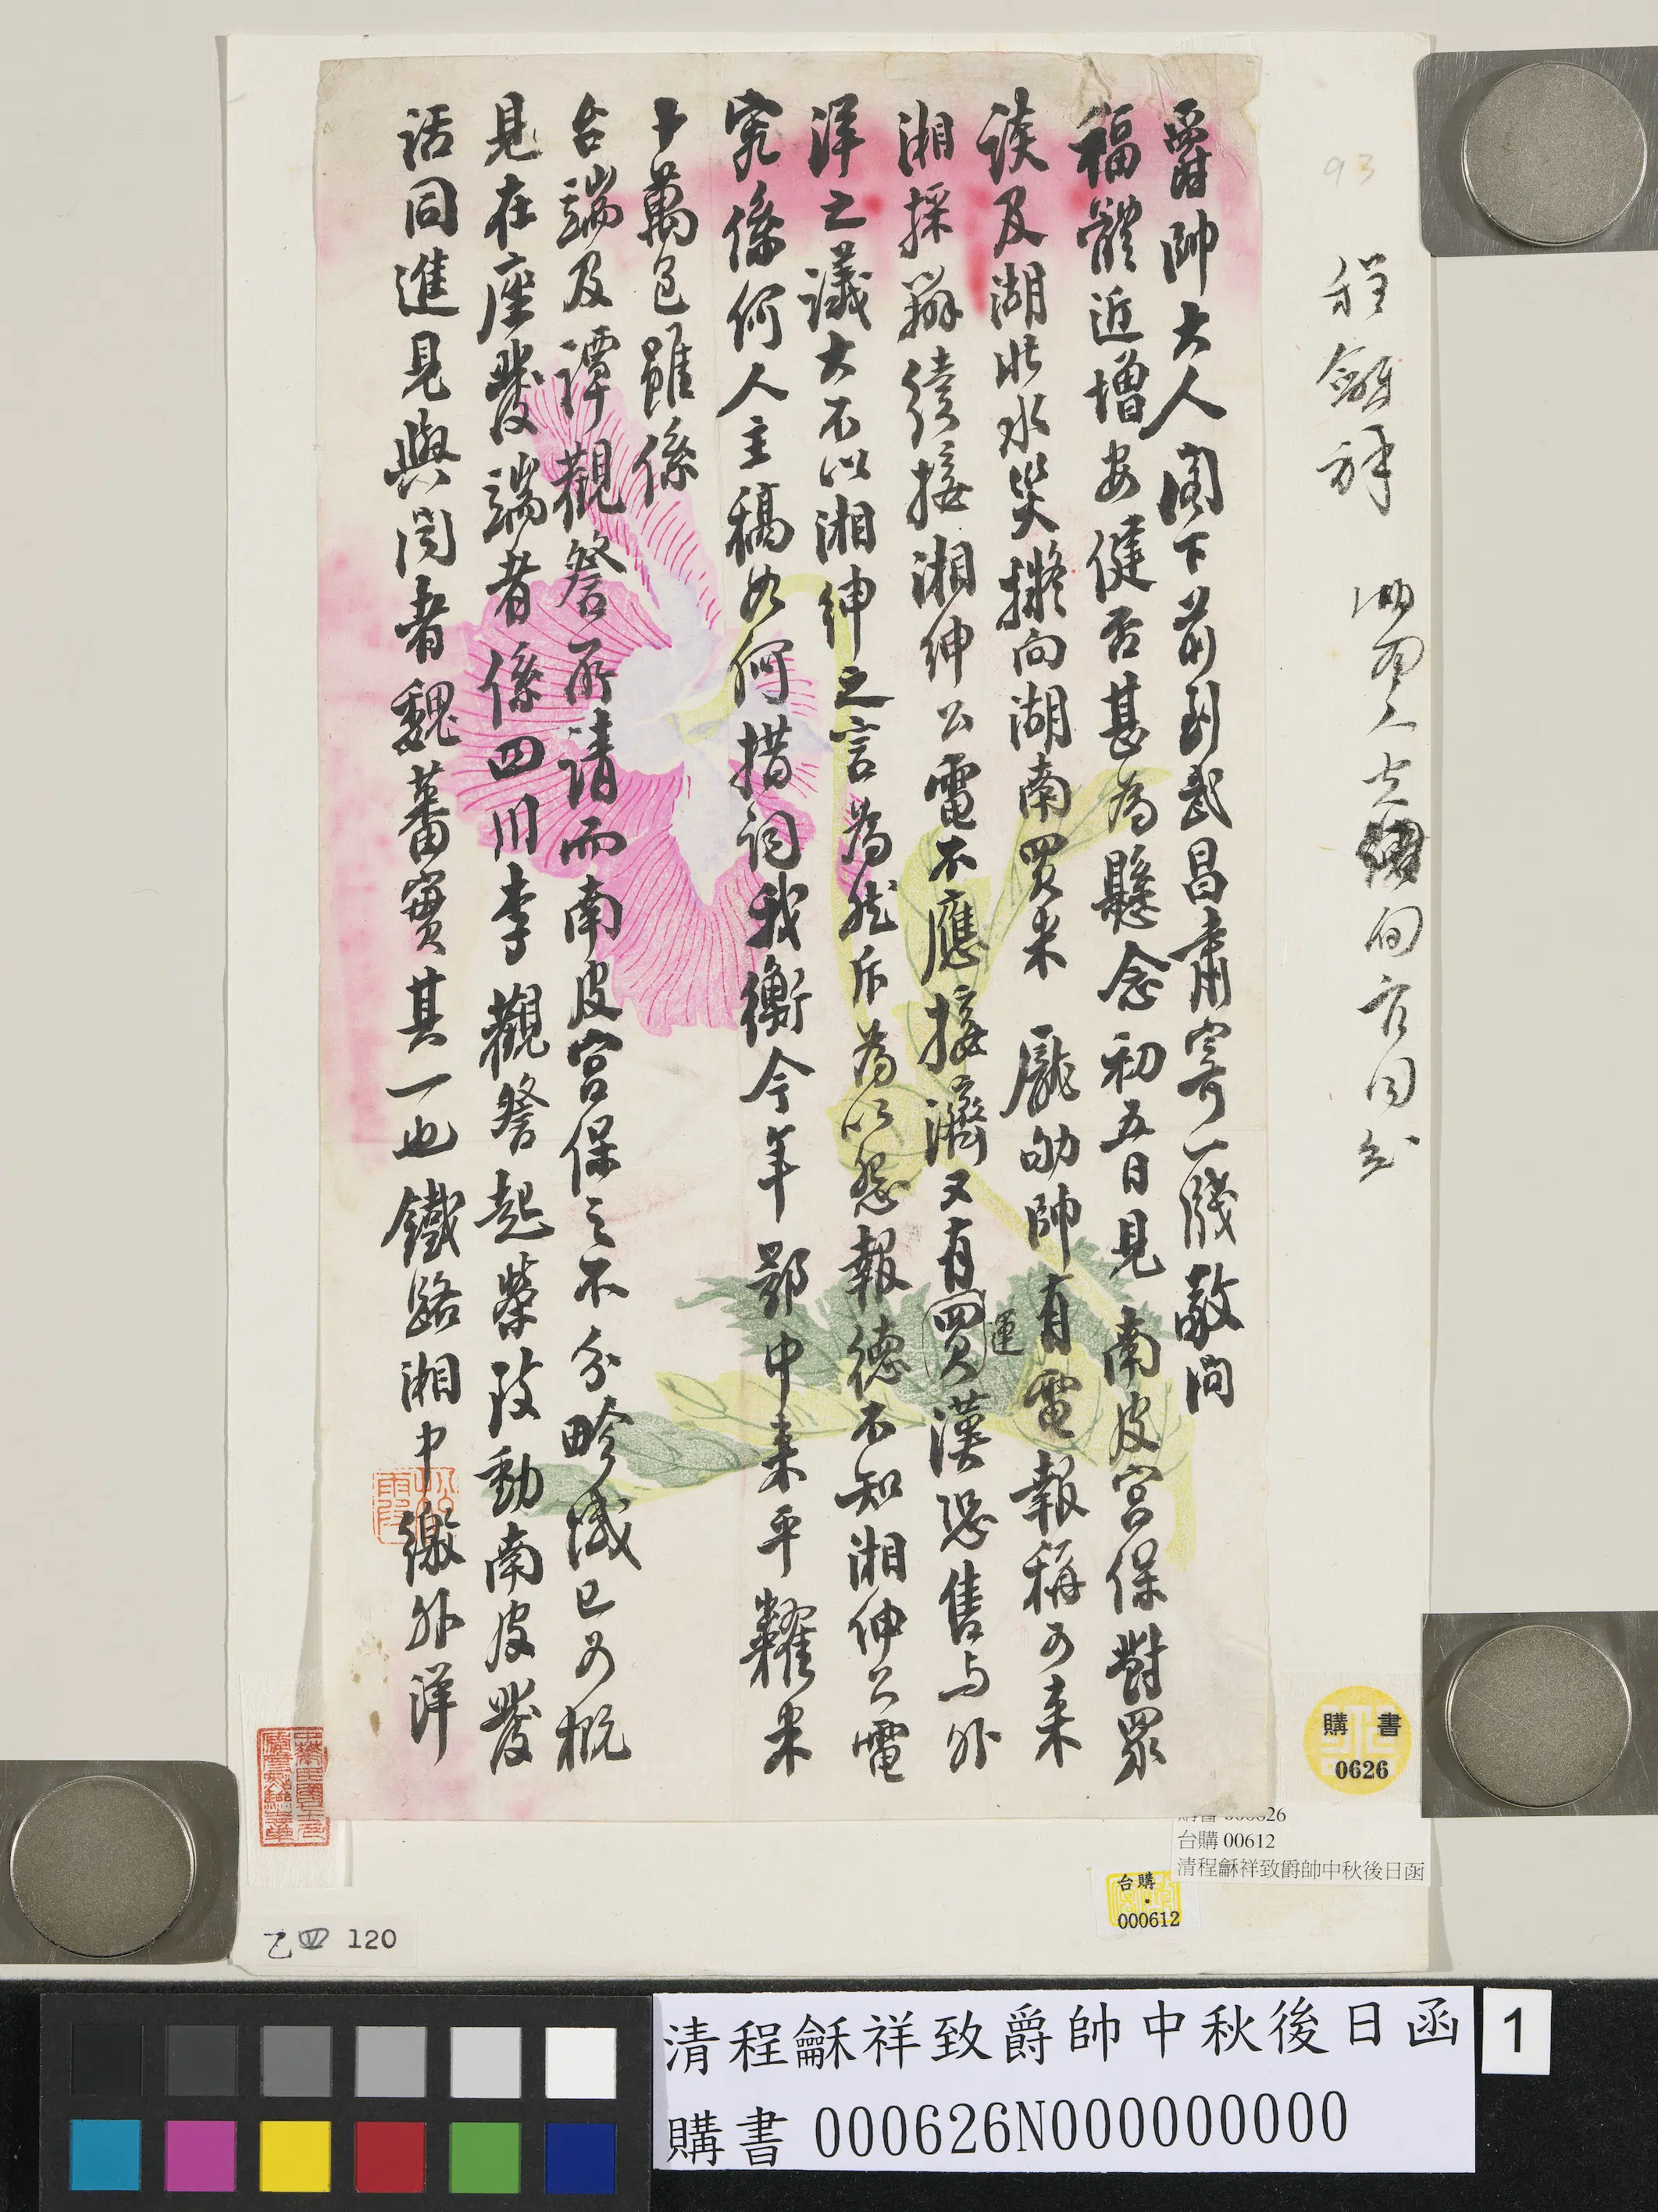 爵帥大人閣下前到武昌肅寄一牋敬問
福體近增安健否甚為懸念初五日見南皮宮保對眾
談及湖北水災擬向湖南買米龐劬帥有電報稱可來
湘採辦續接湘紳公電不應接濟又有買運漢恐售与外
洋之議大不以湘紳之言為然斥為以怨報德不知湘紳公電
究係何人主稿如何措詞我衡今年鄂中來平糶米
十萬包雖係
台端及譚觀詧所請而南皮宮保之不分畛域已可概
見在座發端者係四川李觀詧起榮致動南皮發
話同進見與聞者魏蕃實其一也鐵路湘中繳外洋
93
程龢祥
購書
0626
購書 000626
台購 00612
清程龢祥致爵帥中秋後日函
台購
000612
乙四 120
清程龢祥致爵帥中秋後日函
購書 000626N000000000
1